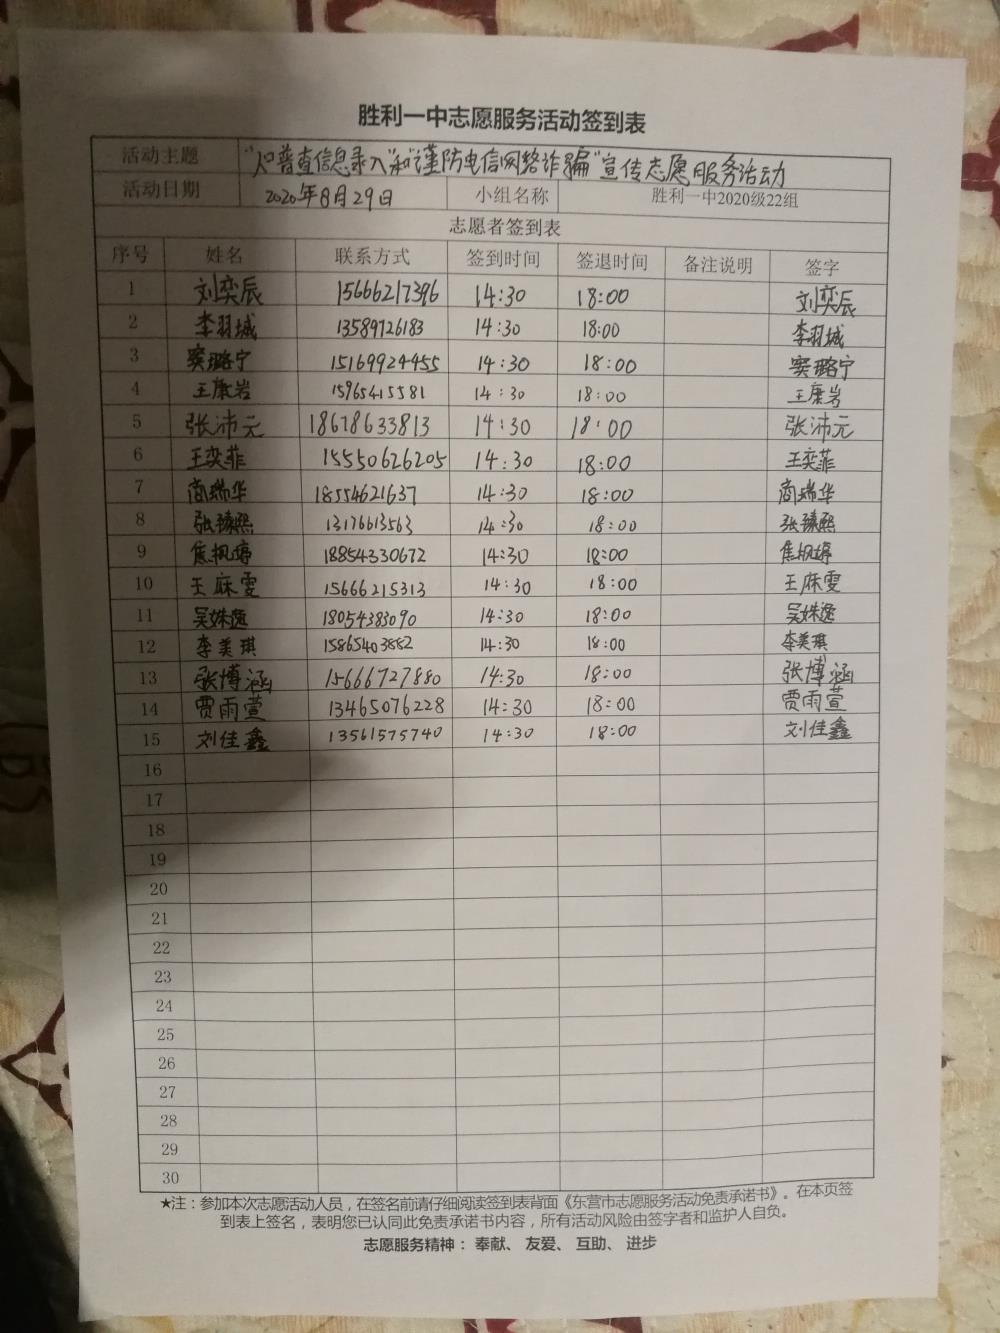 胜利一中志愿服务活动签到表
活动主题 "人口普查信息录入"和"谨防电信网络诈骗"宣传志愿服务活动
活动日期 2020年8月29日 小组名称 胜利一中2020级22组
志愿者签到表
序号 姓名 联系方式 签到时间 签退时间 备注说明 签字
1 刘奕辰 15666217396 14:30 18:00 刘奕辰
2 李羽城 13589726183 14:30 18:00 李羽城
3 窦璐宁 15169924455 14:30 18:00 窦璐宁
4 王康岩 15965415581 14:30 18:00 王康岩
5 张沛元 18678633813 14:30 18:00 张沛元
6 王奕菲 15550626205 14:30 18:00 王奕菲
7 商瑞华 18554621637 14:30 18:00 商瑞华
8 张臻熙 13176613563 14:30 18:00 张臻熙
9 焦枫婷 18854330672 14:30 18:00 焦枫婷
10 王麻雯 15666215313 14:30 18:00 王麻雯
11 吴姝逸 18054383090 14:30 18:00 吴姝逸
12 李美琪 15865403882 14:30 18:00 李美琪
13 张博涵 15666727880 14:30 18:00 张博涵
14 贾雨萱 13465076228 14:30 18:00 贾雨萱
15 刘佳鑫 13561575740 14:30 18:00 刘佳鑫
16
17
18
19
20
21
22
23
24
25
26
27
28
29
30
★注：参加本次志愿活动人员，在签名前请仔细阅读签到表背面《东营市志愿服务活动免责承诺书》。在本页签
到表上签名，表明您已认同此免责承诺书内容，所有活动风险由签字者和监护人自负。
志愿服务精神：奉献、友爱、互助、进步